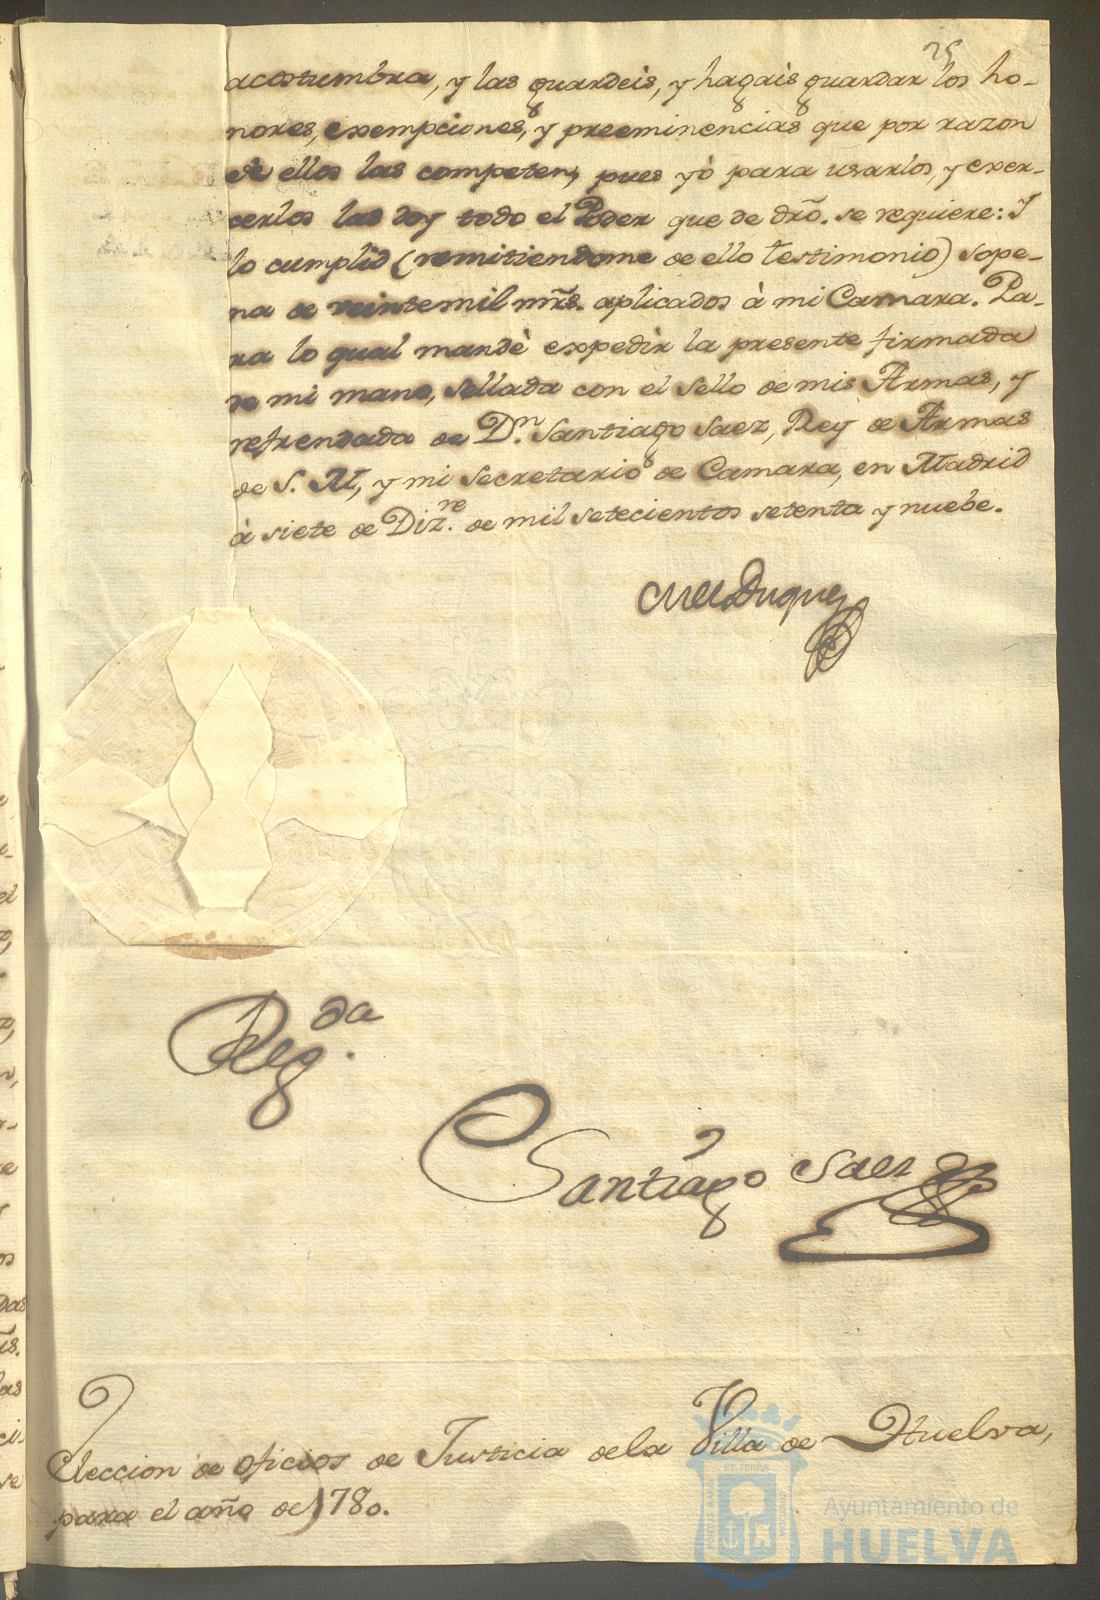 25
acostumbra, y las guardeis, y hagais guardar los ho-
nores, exempciones, y preeminencias que por razon
de ellos las competen, pues yò para usarlos, y exer-
cerlos las doy todo el Poder que de dr̃o. se requiere: Y
lo cumplid (remitiendome de ello testimonio) sope-
na de veinte mil mr̃s. aplicados à mi Camara. Pa-
ra lo qual mandè expedir la presente firmada
de mi mano, sellada con el sello de mis Armas, y
refrendada de Dn. Santiago Saez, Rey de Armas
de S. M, y mi Secretario de Camara, en Madrid
à siete de Dizre. de mil setecientos setenta y nuebe.
Duque
Regda.
Santiago Saez
Eleccion de oficios de Justicia dela Villa de Huelva,
para el año de 1780.
Ayuntamiento de
HUELVA